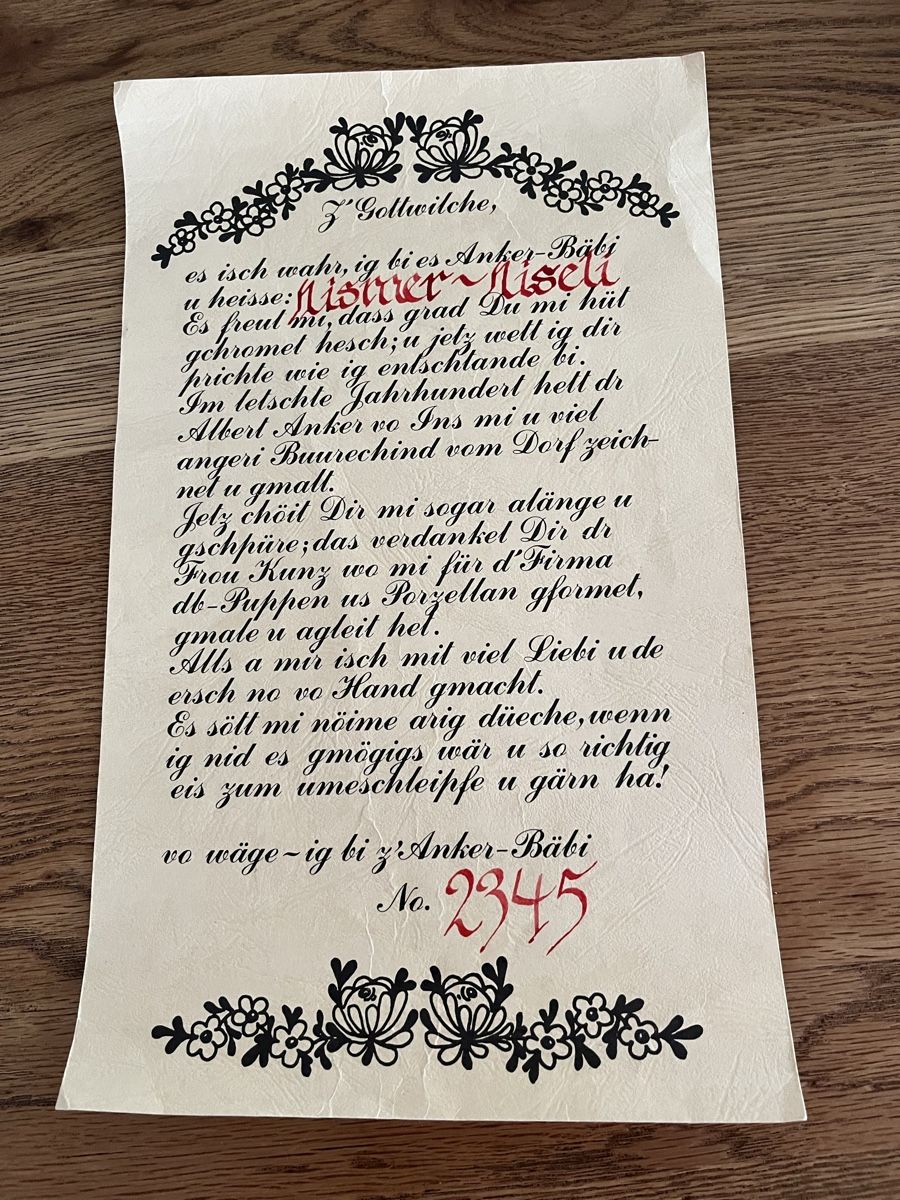 Z'Gottwilche,
es isch wahr, ig bi es Anker-Bäbi
u heisse: Lismer~Liseli
Es freut mi, dass grad Du mi hüt
gchromet hesch; u jetz wett ig dir
prichte wie ig entschtande bi.
Im letschte Jahrhundert hett dr
Albert Anker vo Ins mi u viel
angeri Buurechind vom Dorf zeich-
net u gmalt.
Jetz chöit Dir mi sogar alänge u
gschpüre; das verdanket Dir dr
Frou Kunz wo mi für d'Firma
db-Puppen us Porzellan gformet,
gmale u agleit het.
Alls a mir isch mit viel Liebi u de
ersch no vo Hand gmacht.
Es sött mi nöime arig düeche, wenn
ig nid es gmögigs wär u so richtig
eis zum umeschleipfe u gärn ha!
vo wäge~ig bi z'Anker-Bäbi
No. 2345